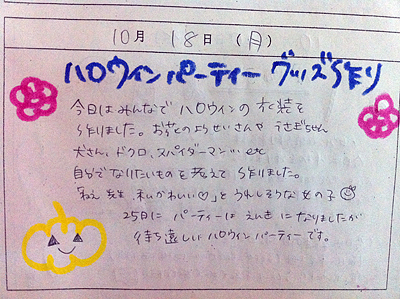 10月 18日 (月)
ハロウィン パーティー グッズ作り
今日はみんなで ハロウィンの 衣装を
作りました。お花のようせいさんや うさぎちゃん
犬さん、ドクロ、スパイダーマン… etc
自分でなりたいものを 考えて 作りました。
「ねぇ 先生、私かわいい♡」と うれしそうな 女の子
25日に パーティーは えんきに なりましたが
待ち遠しい ハロウィン パーティー です。